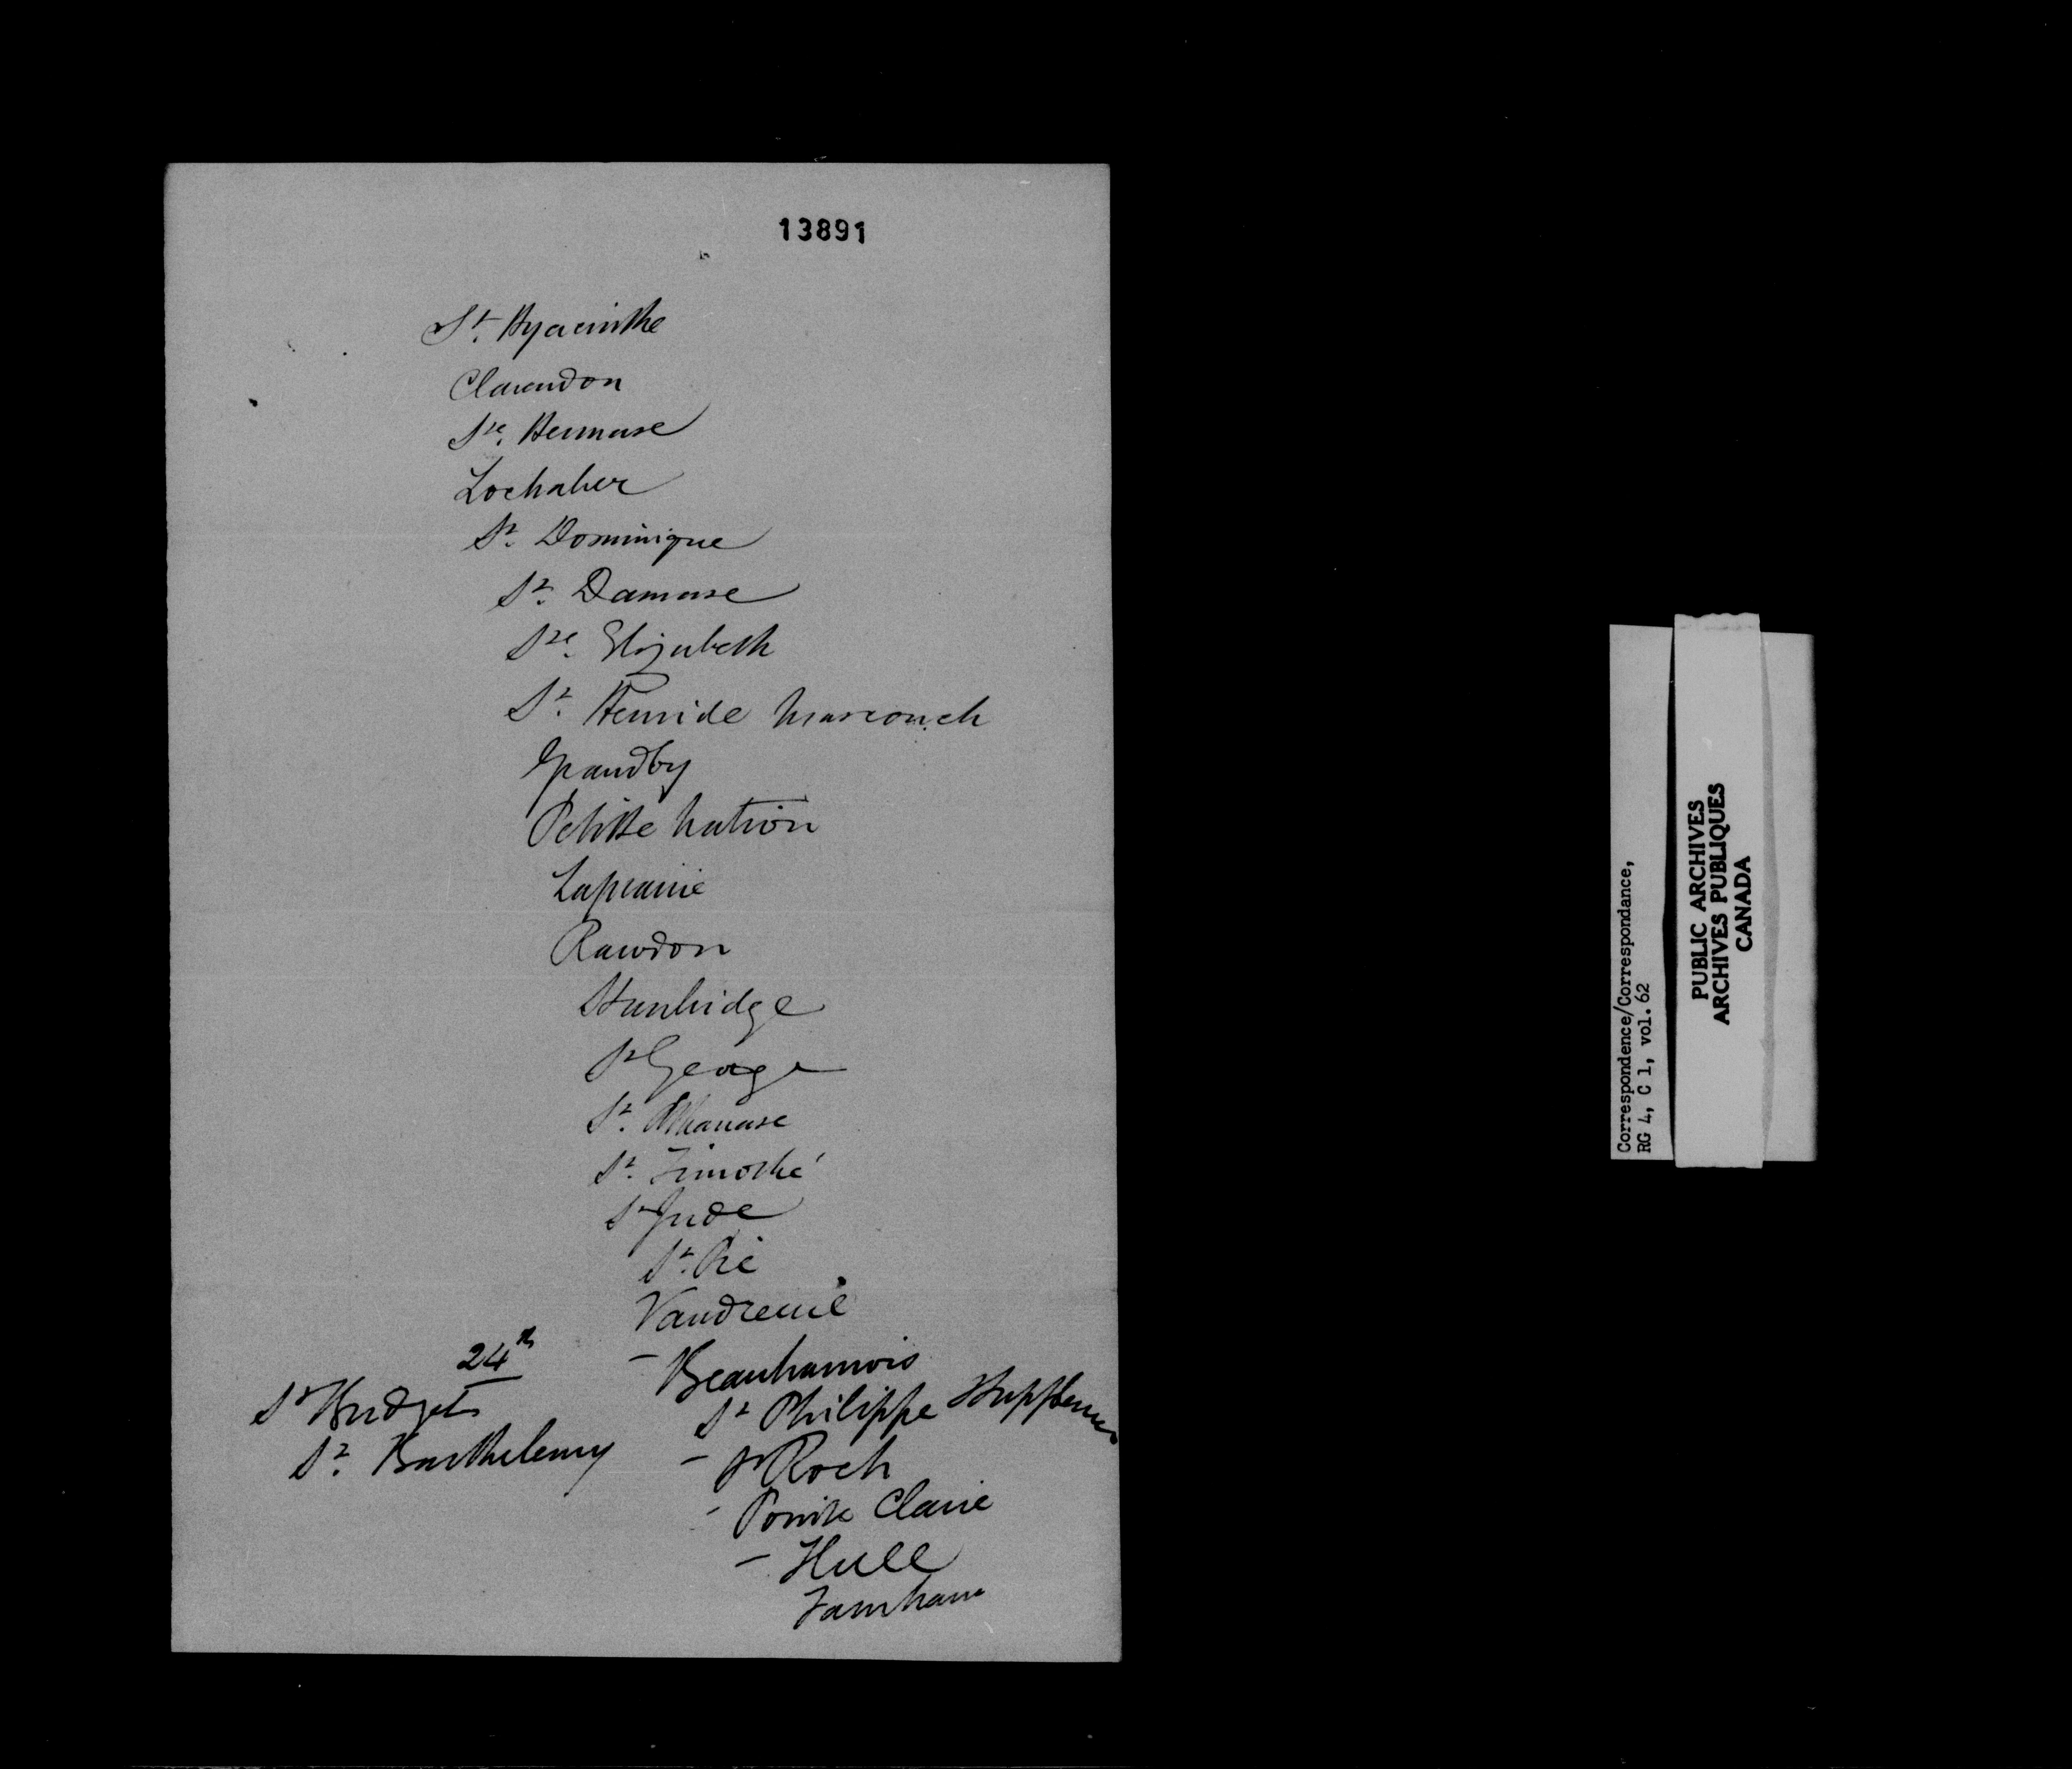 13891
St. Hyacinthe
Clarendon
Ste. Hermase
Lochaber
St. Dominique
St. Damase
Ste. Elizabeth
St. Henride Mascouch
Grandby
Petitte Nation
Laprairie
Rawdon
Stanbridge
St George
St. Athanase
St. Timothé
St Jude
St. Pie
Vaudreuil
- Beauharnois
St Philippe
- St Roch
- Pointe Claire
- Hull
Farnham
24th
St Bridgets
St. Barthelemy
Correspondence/Correspondance,
RG 4, C 1, vol. 62
PUBLIC ARCHIVES
ARCHIVES PUBLIQUES
CANADA